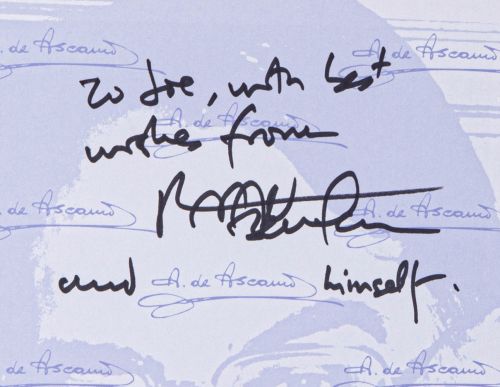 A. de Ascanio A. de Ascanio
To Joe, with best
A. de Ascanio
wishes from
A. de Ascanio A. de Ascanio
and A. de Ascanio himself.
A. de Ascanio A. de Ascanio